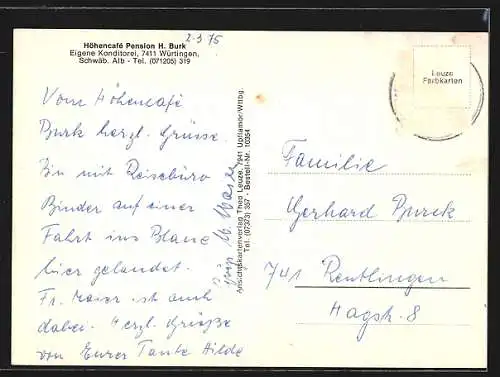 2-3 75
Höhencafé Pension H. Burk
Eigene Konditorei, 7411 Würtingen,
Schwäb. Alb - Tel. (071205) 319
Vom Höhencafé
Burk herzl. Grüsse.
Bin mit Reisebüro
Binder auf einer
Fahrt ins Blaue
hier gelandet.
Fr. Maier ist auch
dabei. Herzl. Grüße
von Eurer Tante Hilde
Ansichtskartenverlag Theo Leuze, 7941 Upflamör/Wttbg.
Tel. (07373) 357 - Bestell-Nr. 10354
Leuze
Farbkarten
Familie
Gerhard Burck
741 Reutlingen
Hagstr. 8